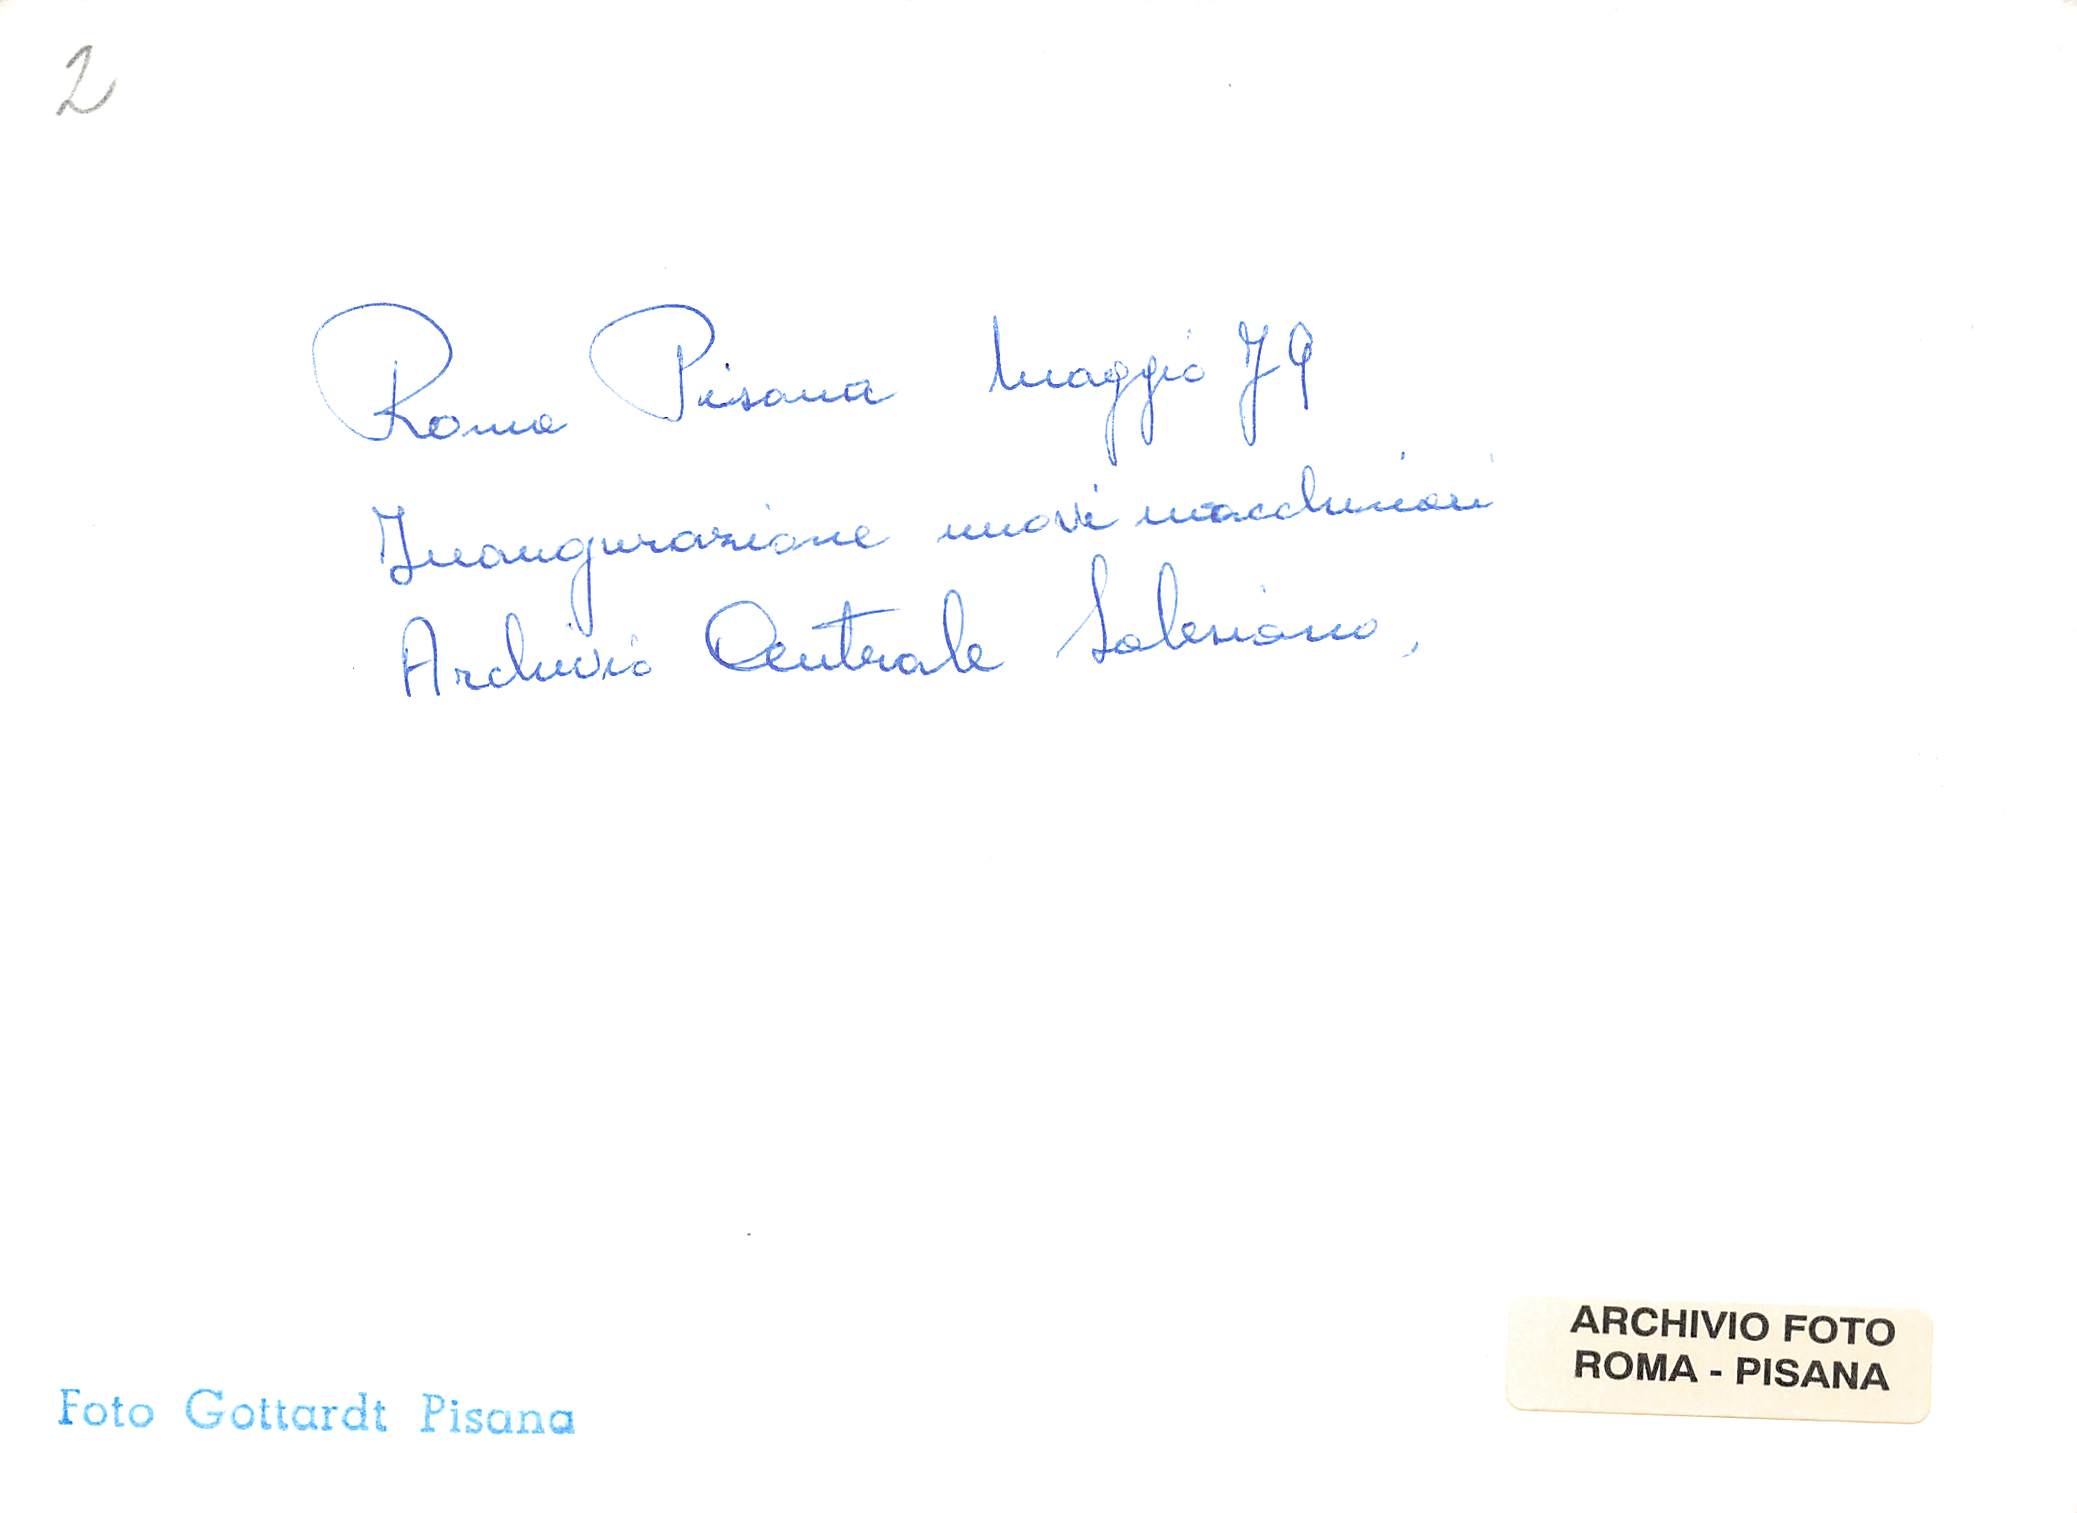 2
Roma Pisana Maggio 79
Inaugurazione nuovi macchinari
Archivio Centrale Salesiano,
ARCHIVIO FOTO
ROMA - PISANA
Foto Gottardt Pisana